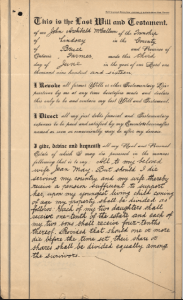 This is the Last Will and Testament
of me John Archibald McCallum of the Township
of Lindsay in the County
of Bruce and Province of
Ontario Farmer made this Third
day of June in the year of our Lord one
thousand nine hundred and sixteen
I Revoke all former Wills or other Testamentary Dis-
positions by me at any time heretofore made and declare
this only to be and contain my last Will and Testament.
I Direct all my just debts funeral and Testamentary
expenses to be paid and satisfied by my Executors hereinafter
named as soon as conveniently may be after my decease
I Give, devise and bequeath all my Real and Personal
Estate of which I may die possessed in the manner
following that is to say All to my beloved
wife Jean May. But should I die
serving my country and my wife thereby
receive a pension sufficient to support
her, upon my youngest living child coming
of age my property shall be divided as
follows: Each of my two daughters shall
receive one-tenth of the estate and each of
my two sons shall receive four-tenths
thereof. Provided that should one or more
die before the time set their share or
shares shall be divided equally among
the survivors.